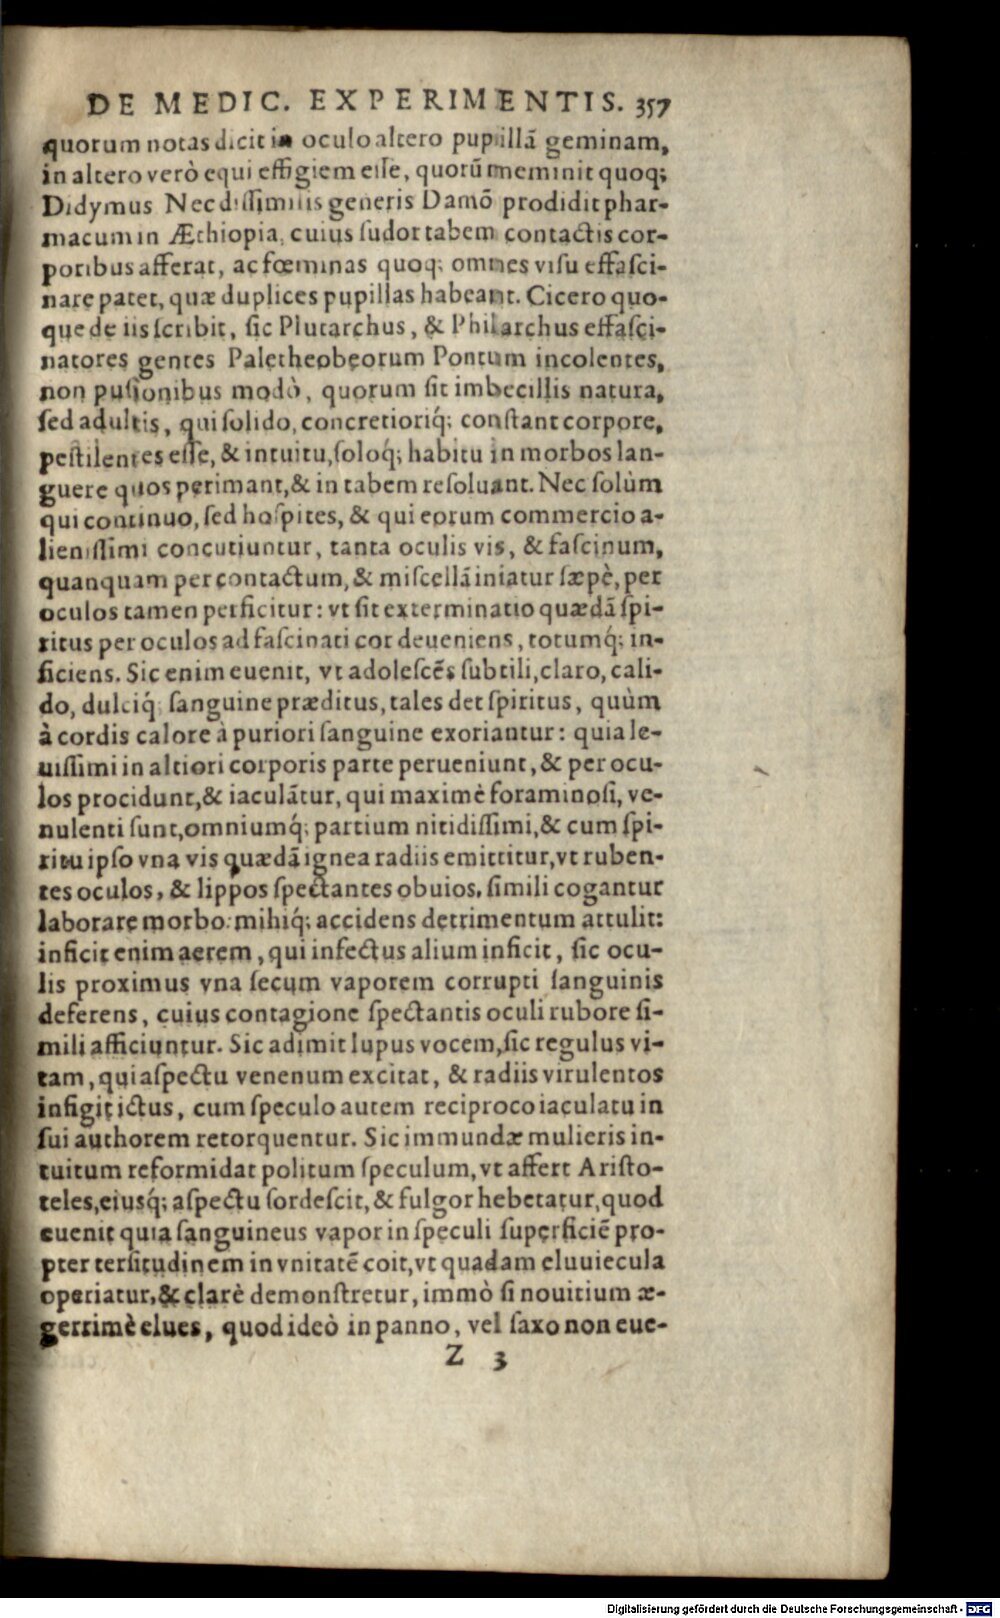 DE MEDIC. EXPERIMENTIS. 357
quorum notas dicit in oculo altero pupillã geminam,
in altero verò equi effigiem eſſe, quorũ meminit quoq;
Didymus Nec diſſimilis generis Damõ prodidit phar-
macum in Æthiopia, cuius ſudor tabem contactis cor-
poribus afferat, ac fœminas quoq; omnes viſu effaſci-
nare patet, quæ duplices pupillas habeant. Cicero quo-
que de iis ſcribit, ſic Plutarchus, & Philarchus effaſci-
natores gentes Paletheobeorum Pontum incolentes,
non puſionibus modò, quorum ſit imbecillis natura,
ſed adultis, qui ſolido, concretioriq́; conſtant corpore,
peſtilentes eſſe, & intuitu, ſoloq́; habitu in morbos lan-
guere quos perimant, & in tabem reſoluant. Nec ſolùm
qui continuo, ſed hoſpites, & qui eorum commercio a-
lieniſſimi concutiuntur, tanta oculis vis, & faſcinum,
quanquam per contactum, & miſcellã iniatur ſæpè, per
oculos tamen perficitur: vt ſit exterminatio quædã ſpi-
ritus per oculos ad faſcinati cor deueniens, totumq́; in-
ficiens. Sic enim euenit, vt adoleſcẽs ſubtili, claro, cali-
do, dulciq́; ſanguine præditus, tales det ſpiritus, quùm
à cordis calore à puriori ſanguine exoriantur: quia le-
uiſſimi in altiori corporis parte perueniunt, & per ocu-
los procidunt, & iaculãtur, qui maximè foraminoſi, ve-
nulenti ſunt, omniumq́; partium nitidiſſimi, & cum ſpi-
ritu ipſo vna vis quædã ignea radiis emittitur, vt ruben-
tes oculos, & lippos ſpectantes obuios, ſimili cogantur
laborare morbo: mihiq́; accidens detrimentum attulit:
inficit enim aerem, qui infectus alium inficit, ſic ocu-
lis proximus vna ſecum vaporem corrupti ſanguinis
deferens, cuius contagione ſpectantis oculi rubore ſi-
mili afficiuntur. Sic adimit lupus vocem, ſic regulus vi-
tam, qui aſpectu venenum excitat, & radiis virulentos
infigit ictus, cum ſpeculo autem reciproco iaculatu in
ſui authorem retorquentur. Sic immundæ mulieris in-
tuitum reformidat politum ſpeculum, vt affert Ariſto-
teles, eiusq́; aſpectu ſordeſcit, & fulgor hebetatur, quod
euenit quia ſanguineus vapor in ſpeculi ſuperficiẽ pro-
pter terſitudinem in vnitatẽ coit, vt quadam eluuiecula
operiatur, & clarè demonſtretur, immò ſi nouitium æ-
gerrimè elues, quod ideò in panno, vel ſaxo non eue-
Z 3
Digitalisierung gefördert durch die Deutsche Forschungsgemeinschaft - DFG